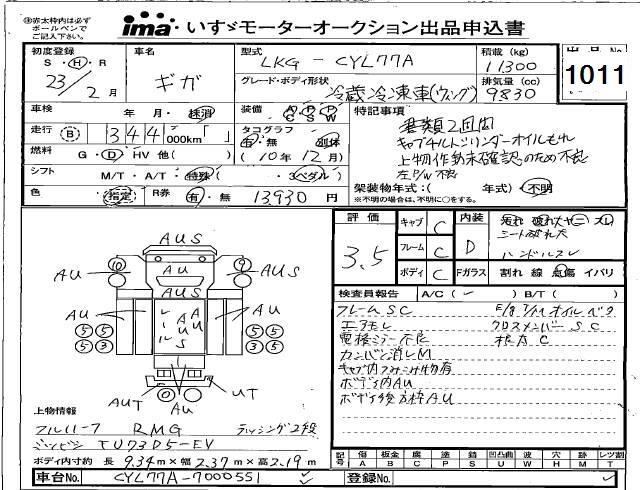 ㊟赤太枠内は必ず
ボールペンで
ご記入下さい。
ima いすゞモーターオークション出品申込書
初度登録
S・H・R
23/2月
車名
ギガ
型式
LKG-CYL77A
グレード・ボディ形状
冷蔵冷凍車(ウィング)
積載 (kg)
11300
排気量 (cc)
9830
1011
車検 年・月・抹消
走行 B 344,000km「 」
燃料 G・D・HV 他( )
シフト M/T・A/T・特殊( ・3ペダル)
色 指定 R券 有・無 13,930円
装備 AC PS PW
タコグラフ
有・無 別体
(10年12月)
特記事項
書類2回
キャブチルトシリンダーオイルもれ
上物作動未確認のため不良
左P/W不良
架装物年式:( 年式)・不明
※不明の場合は、不明に○をする。
評価
3.5
キャブ C
フレーム C
ボディ C
内装 D
汚れ 破れ大 ヤニ スレ
シート破れ大
ハンドルスレ
Fガラス 割れ 線 点傷 イバリ
検査員報告 A/C(✓) B/T( )
フレームSC
エアモレ
電格ミラー不良
カンバン消しM
キャブ内
ボディ内AU
ボディ後方枠AU
クロスメンバーSC
AUS
AU
AUS
AU
AUS
AU
AU
AUT
AU
UT
上物情報
フルハーフ RMG ラッシング2段
TU73D5-EV
ボディ内寸約 長 9.34m×幅 2.37m×高 2.19m
車台No. CYL77A-7000551
登録No.
記号 傷A 板金B 腐C 塗P 錆S 凹凸曲U 波W 穴H 跡M レツ割T